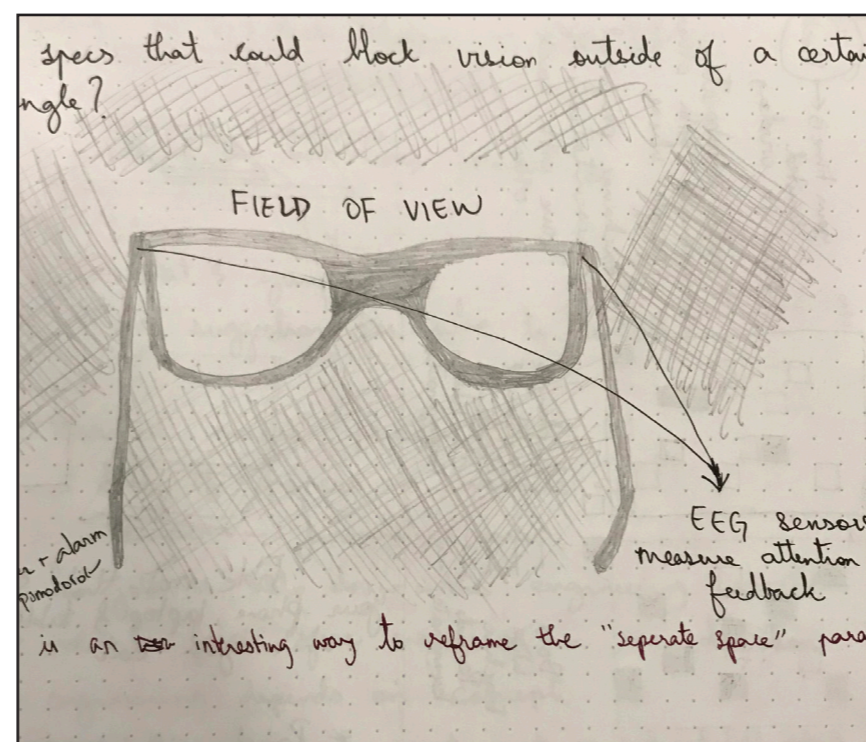 specs that could block vision outside of a certai
ngle?
FIELD OF VIEW
EEG sensor
measure attention
feedback
+ alarm
pomodoro
is an interesting way to reframe the "seperate space" para